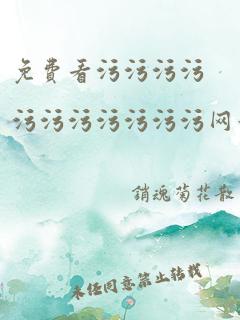 免費看污污污污
污污污污污污污网
銷魂菊花散
未经同意禁止转载